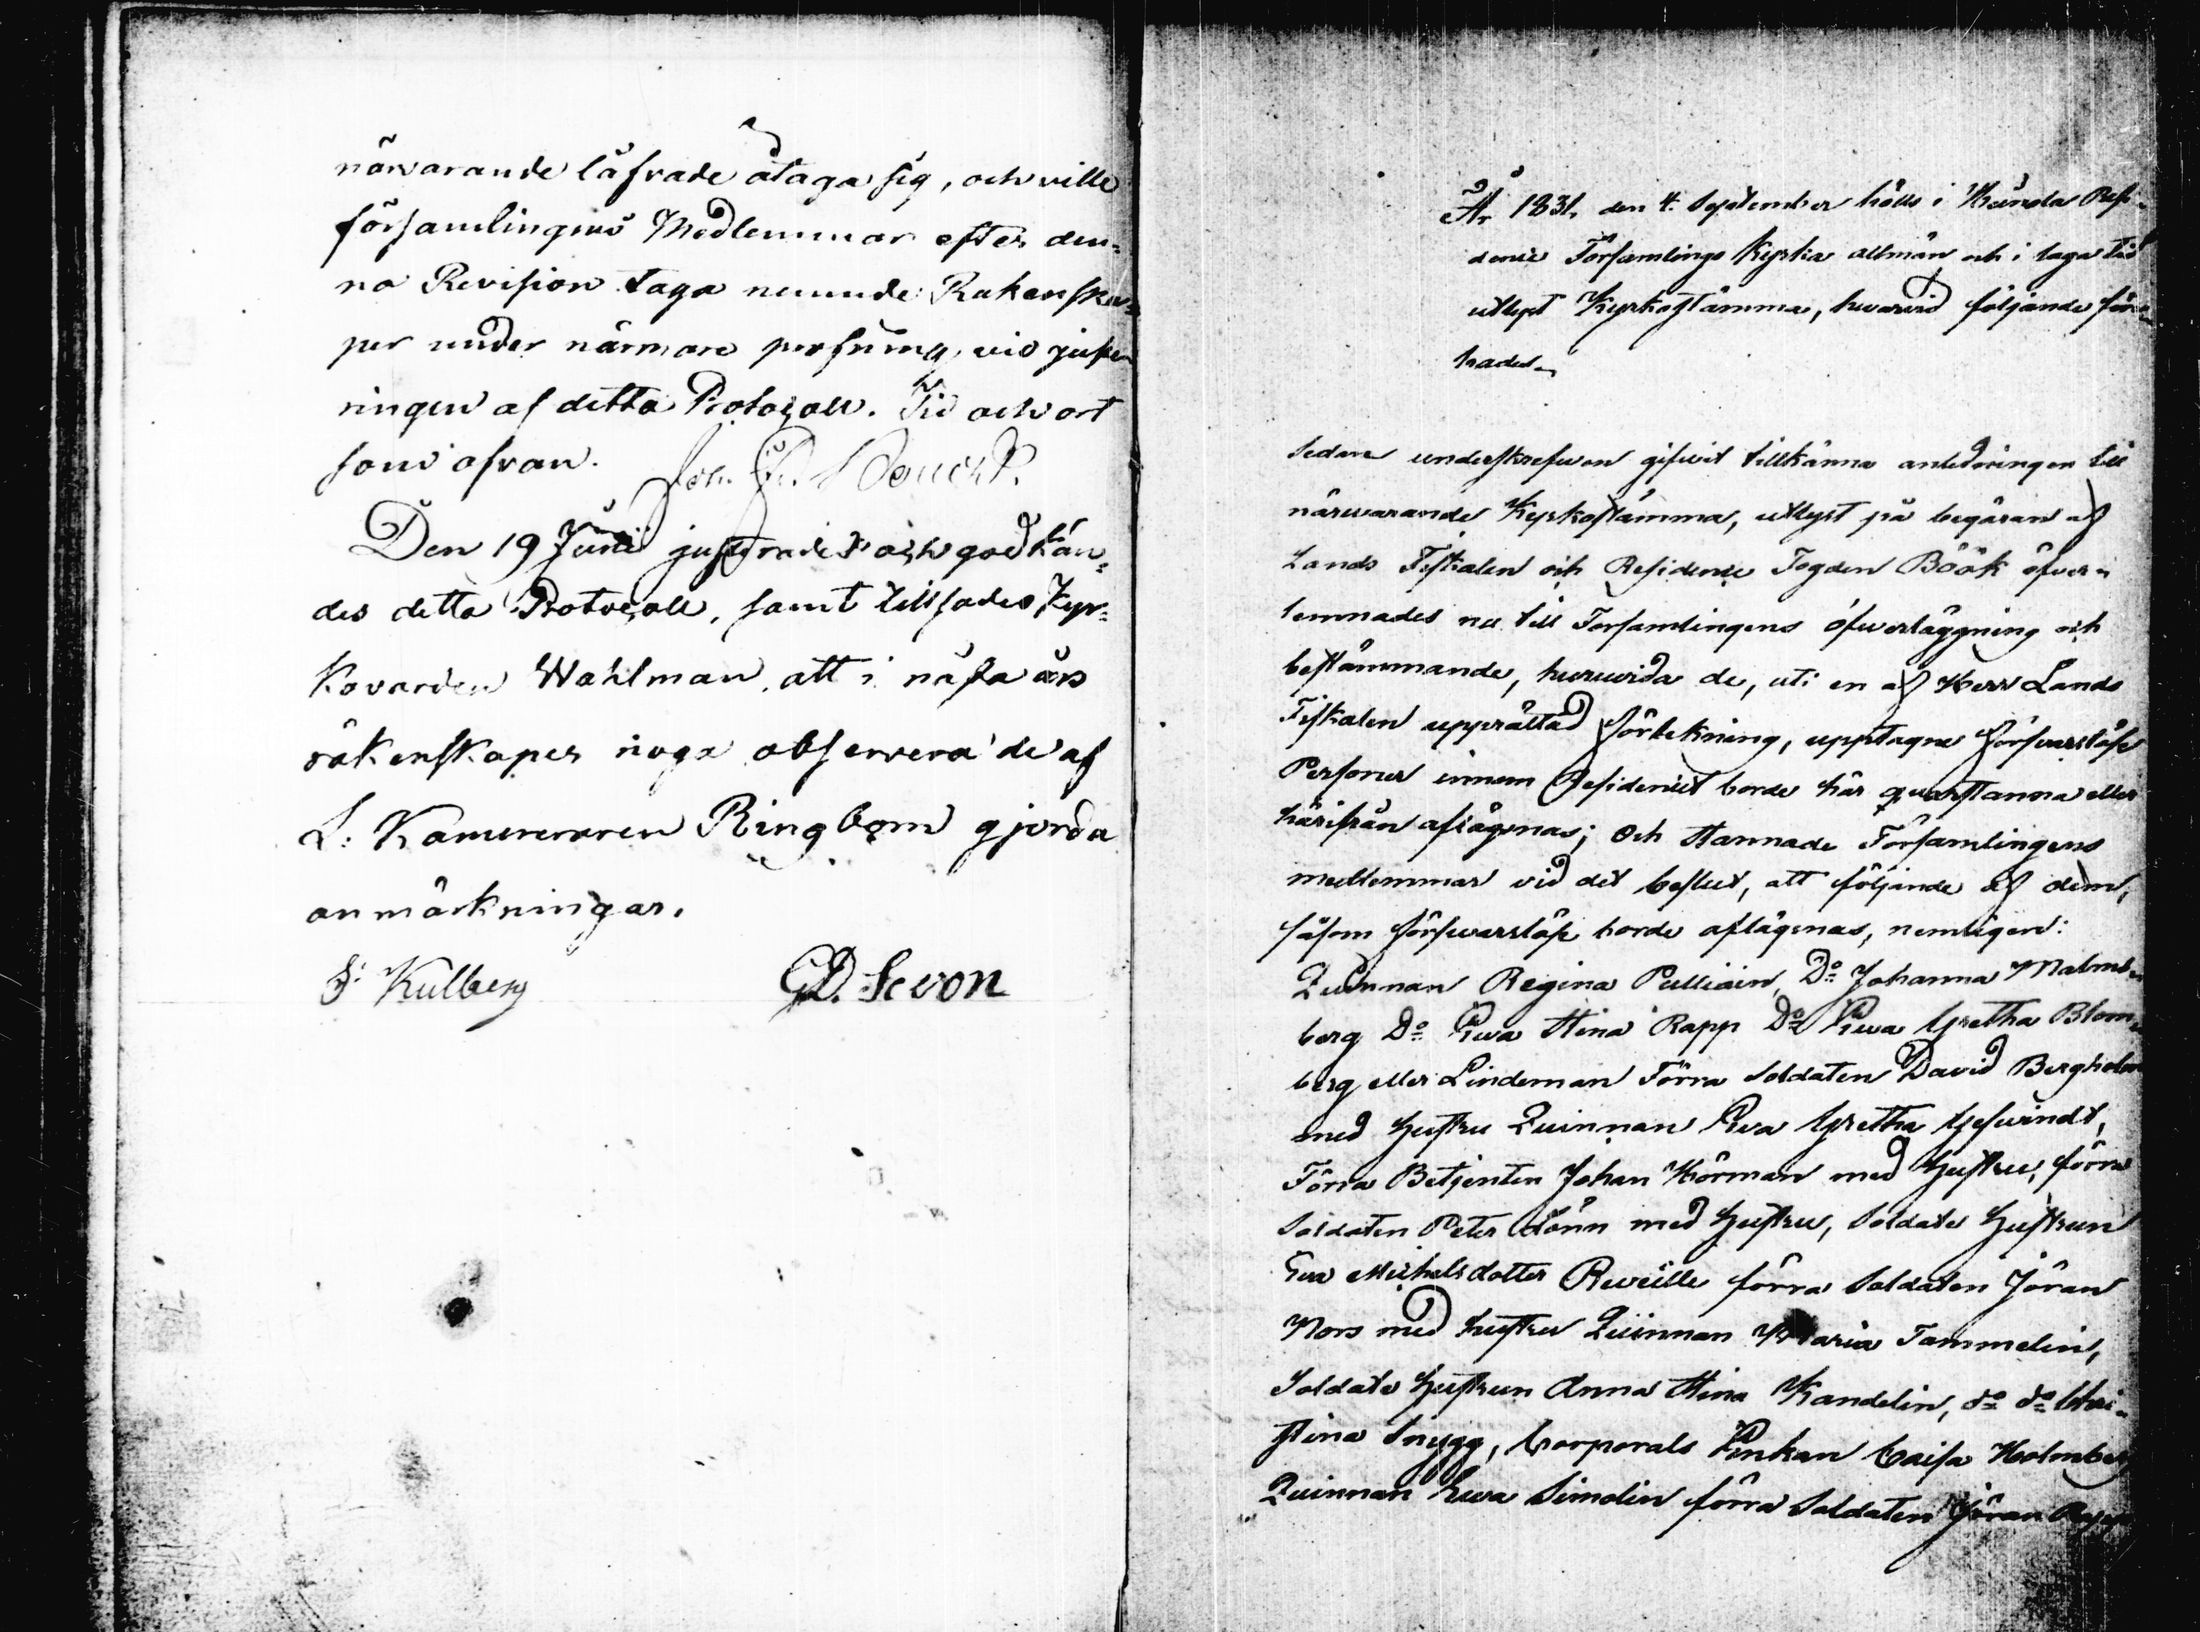 närvarande låfvade åtaga sig, och ville
församlingens Medlemmar efter den-
na Revision taga nemnde Räkenska-
per under närmare pröfning vid juste
ringen af detta Protocoll. Tid och ort
som ofvan. Joh. Fr.
Den 19 Junii justerades och godkän-
des detta Protocoll, samt tillsades Kyr-
kovarden Wahlman, att i nästa års
räkenskaper noga observera de af
L. Kamereraren Ringbom gjorda
anmärkningar.
Kulberg GD. Sevon
År 1831, den 4. September hölls i Hunda Resi-
dence Församlings Kyrka allmän och i laga tid
utlyst Kyrkostämma, hvarvid följande före-
hades.
Sedan underskrefven gifvit tillkänna anledningen till
närvarande Kyrkostämma, utlyst på begäran af
Lands Fiskalen och Residence Fogden Böök öfver-
lemnades nu till Församlingens öfverläggning och
bestämmande, huruvida de, uti en af Herr Lands
Fiskalen upprättad förtekning, uptagne försvarslöse
Personer innom Residencet borde här qvarstanna eller
härifrån aflägsnas; Och stannade Församlingens
medlemmar vid det beslut, att följande af dem,
såsom försvarslöse borde aflägsnas, nemligen:
Quinnan Regina Pulliain, Do Johanna Malm-
berg Do Ewa Stina Rapp Do Ewa Gretha Blom-
berg eller Lindeman Förra Soldaten David Bergholm
med hustru Quinnan Ewa Gretha Gesvindt,
Förra Betjenten Johan Hörman med hustru, förra
Soldaten Peter Lönn med hustru, Soldats hustrun
Eva Michelsdotter Reveille förra Soldaten Jöran
Nors med hustru Quinnan Maria Tammelin,
Soldats hustrun Anna Stina Kandelin, do do Chri-
stina Snygg, Corporals Enkan Caisa Holmberg
Quinnan Ewa Simolin förra Soldaten Jöran